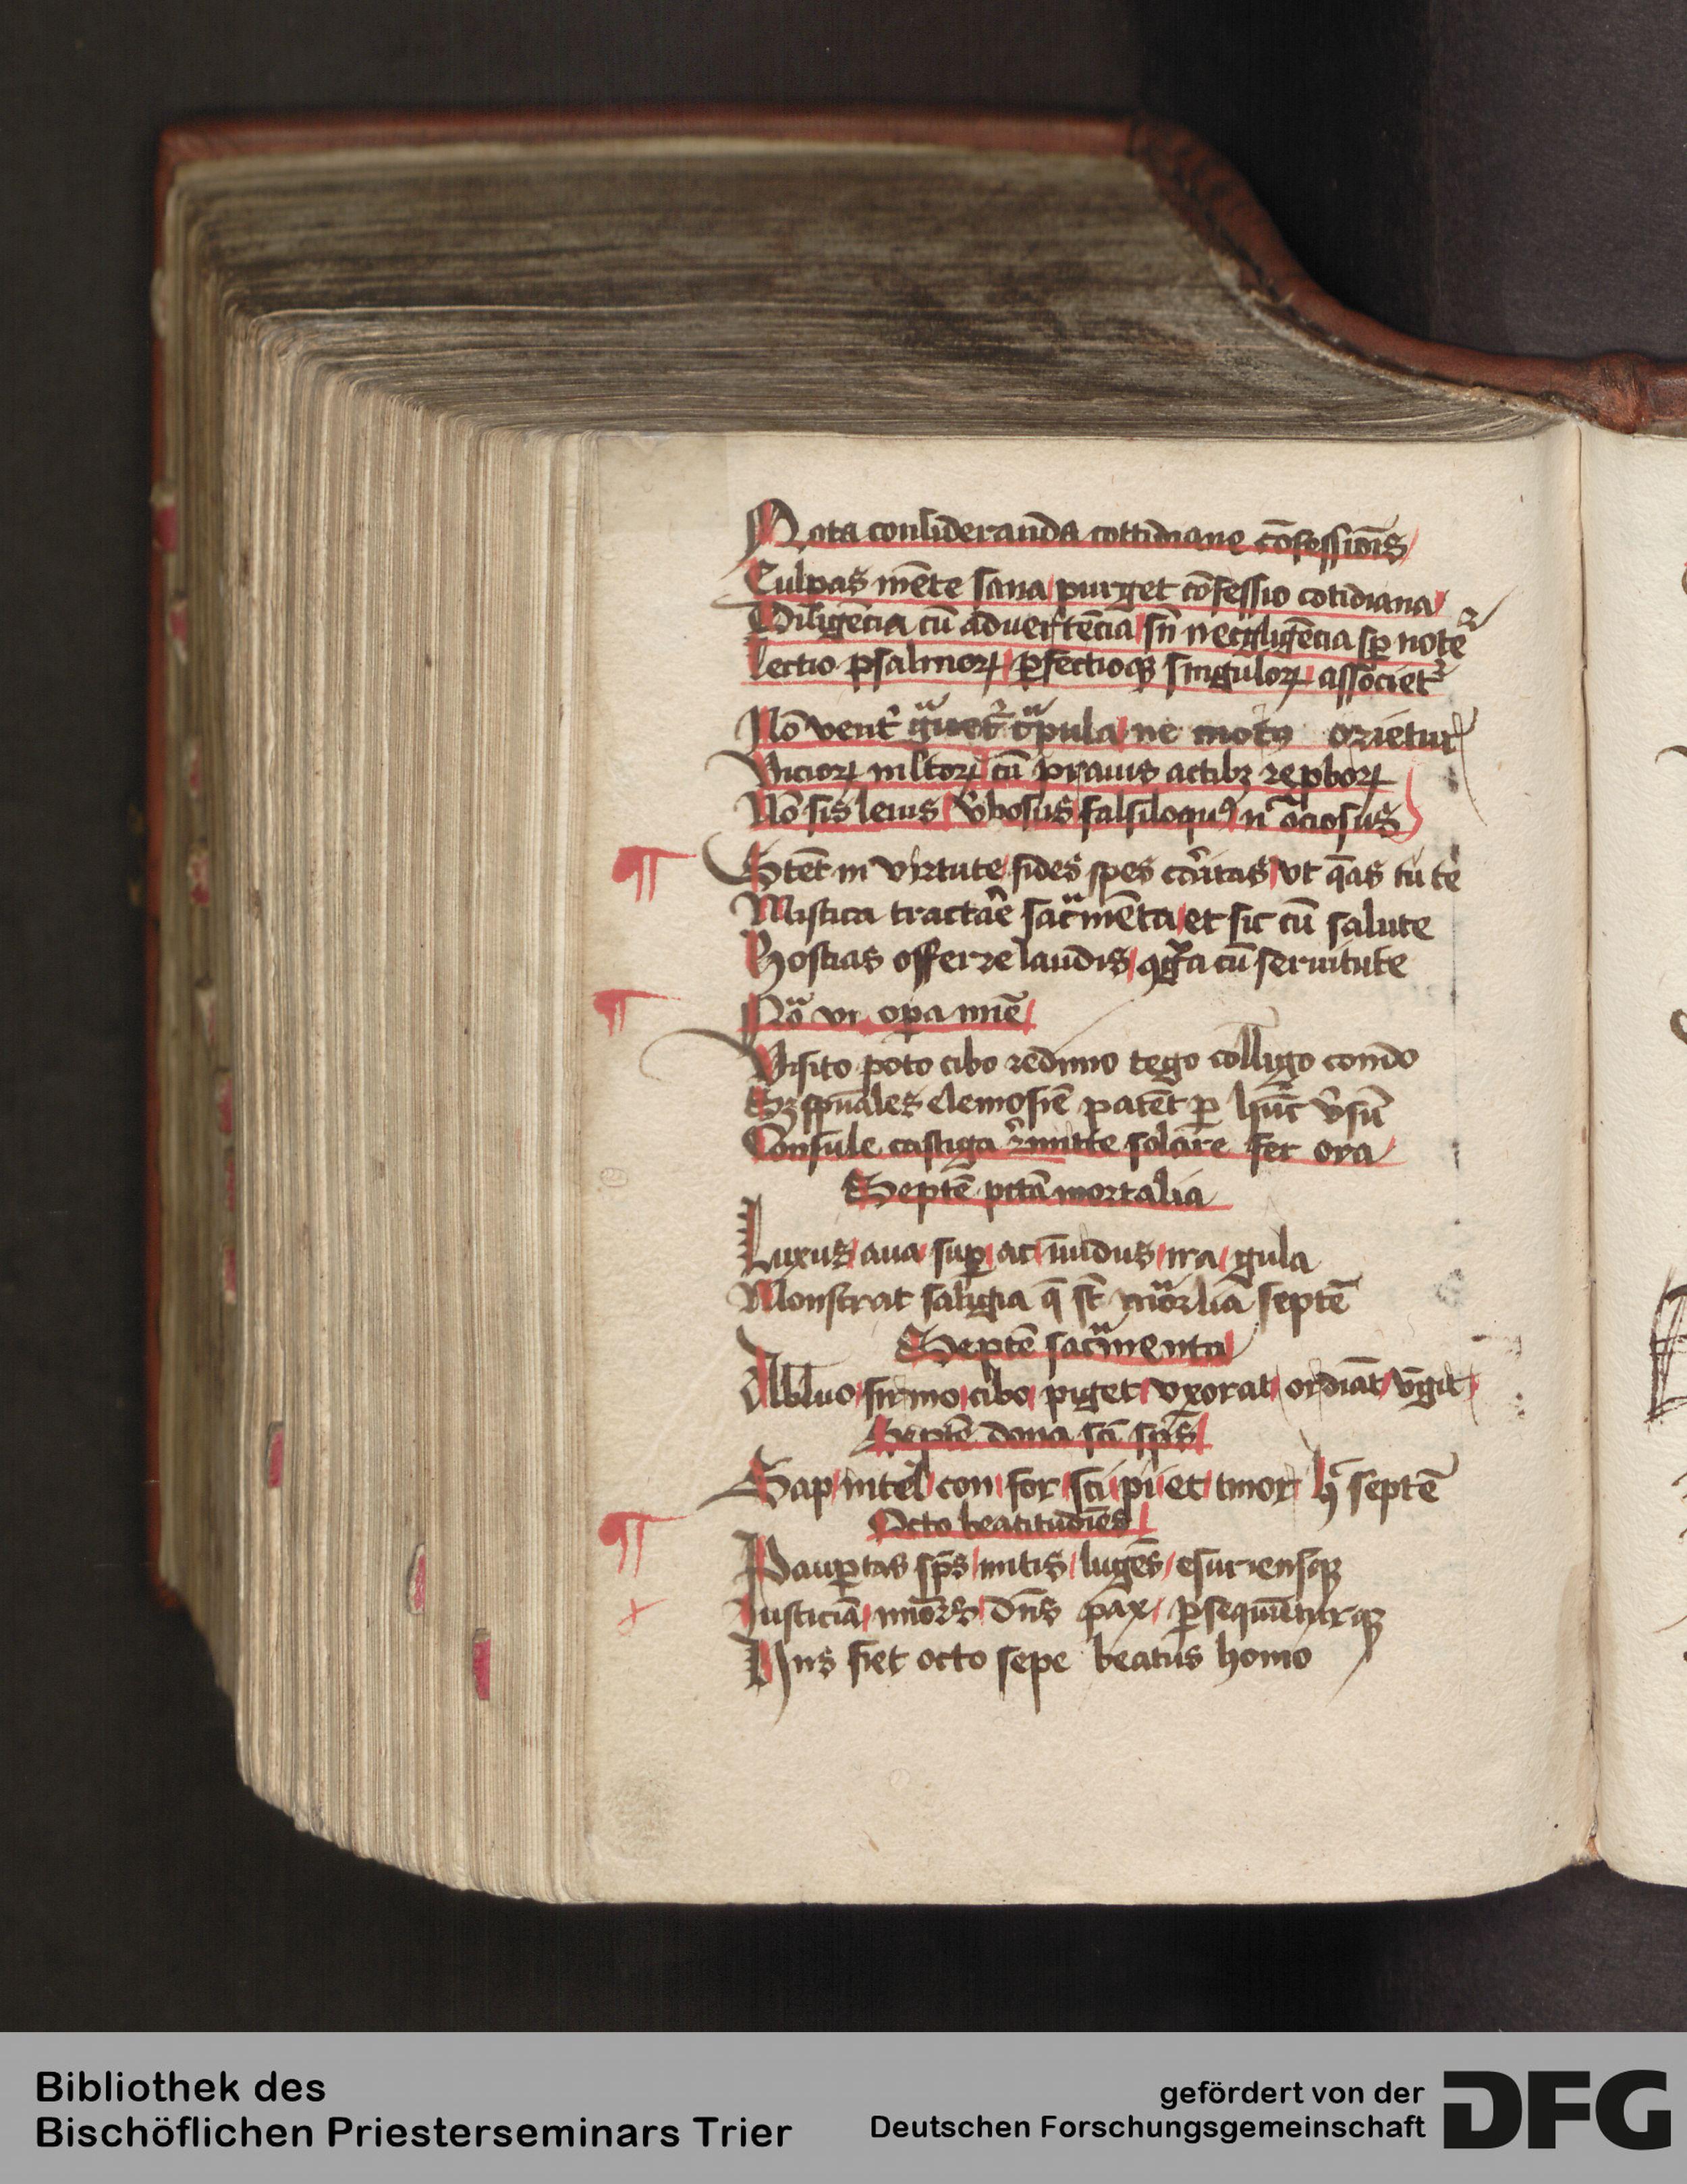 Nota consideranda cottidiane cōfessiōīs
Culpas mēte sana purget cōfessio cotidiana
Diligēcia cū aduertēcia sn̄ negligēcia sꝑ notet᷑
Lectio psalmoꝝ ꝑfectioqꝫ singuloꝝ associet᷑
Nō vent᷑ ne motꝰ orietur
Vicioꝝ mltoꝝ cū prauis actibꝫ repboꝝ
Nō sis leuis v̄bosus falsiloquꝰ n ociosus
¶ Stēt in virtute fides spes cāritas vt q̄as tu te
Mistica tractāe sacͣmēta et sic cū salute
Hostias offerre laudis cū seruitute
¶ Nōͣ vi oꝑa mīē
Visito poto cibo redimo tego colligo condo
Sꝫ spūales elemosīe patēt ꝑ hūc v̄sū
Consule castiga r̄mitte solare fer ora
Septē pctā mortalia
Luxus aua suꝑ ac īuidus ira gula
Monstrat saligia q̄ st̄ mͣorlia septē
Septē sacͣmenta
Abluo firmo cibo piget vxorat ordīat v̄git
Septē dona sci sps̄
Sap intel con for sci pi et timor hͨ septē
Octo beatitudīes
¶ Pauꝑtas sps̄ mitis lugēs esuriensqꝫ
Iusticiā mūors dn̄s pax ꝑsequūturqꝫ
Hiis fiet octo sepe beatus homo
Bibliothek des
Bischöflichen Priesterseminars Trier
gefördert von der
Deutschen Forschungsgemeinschaft
DFG